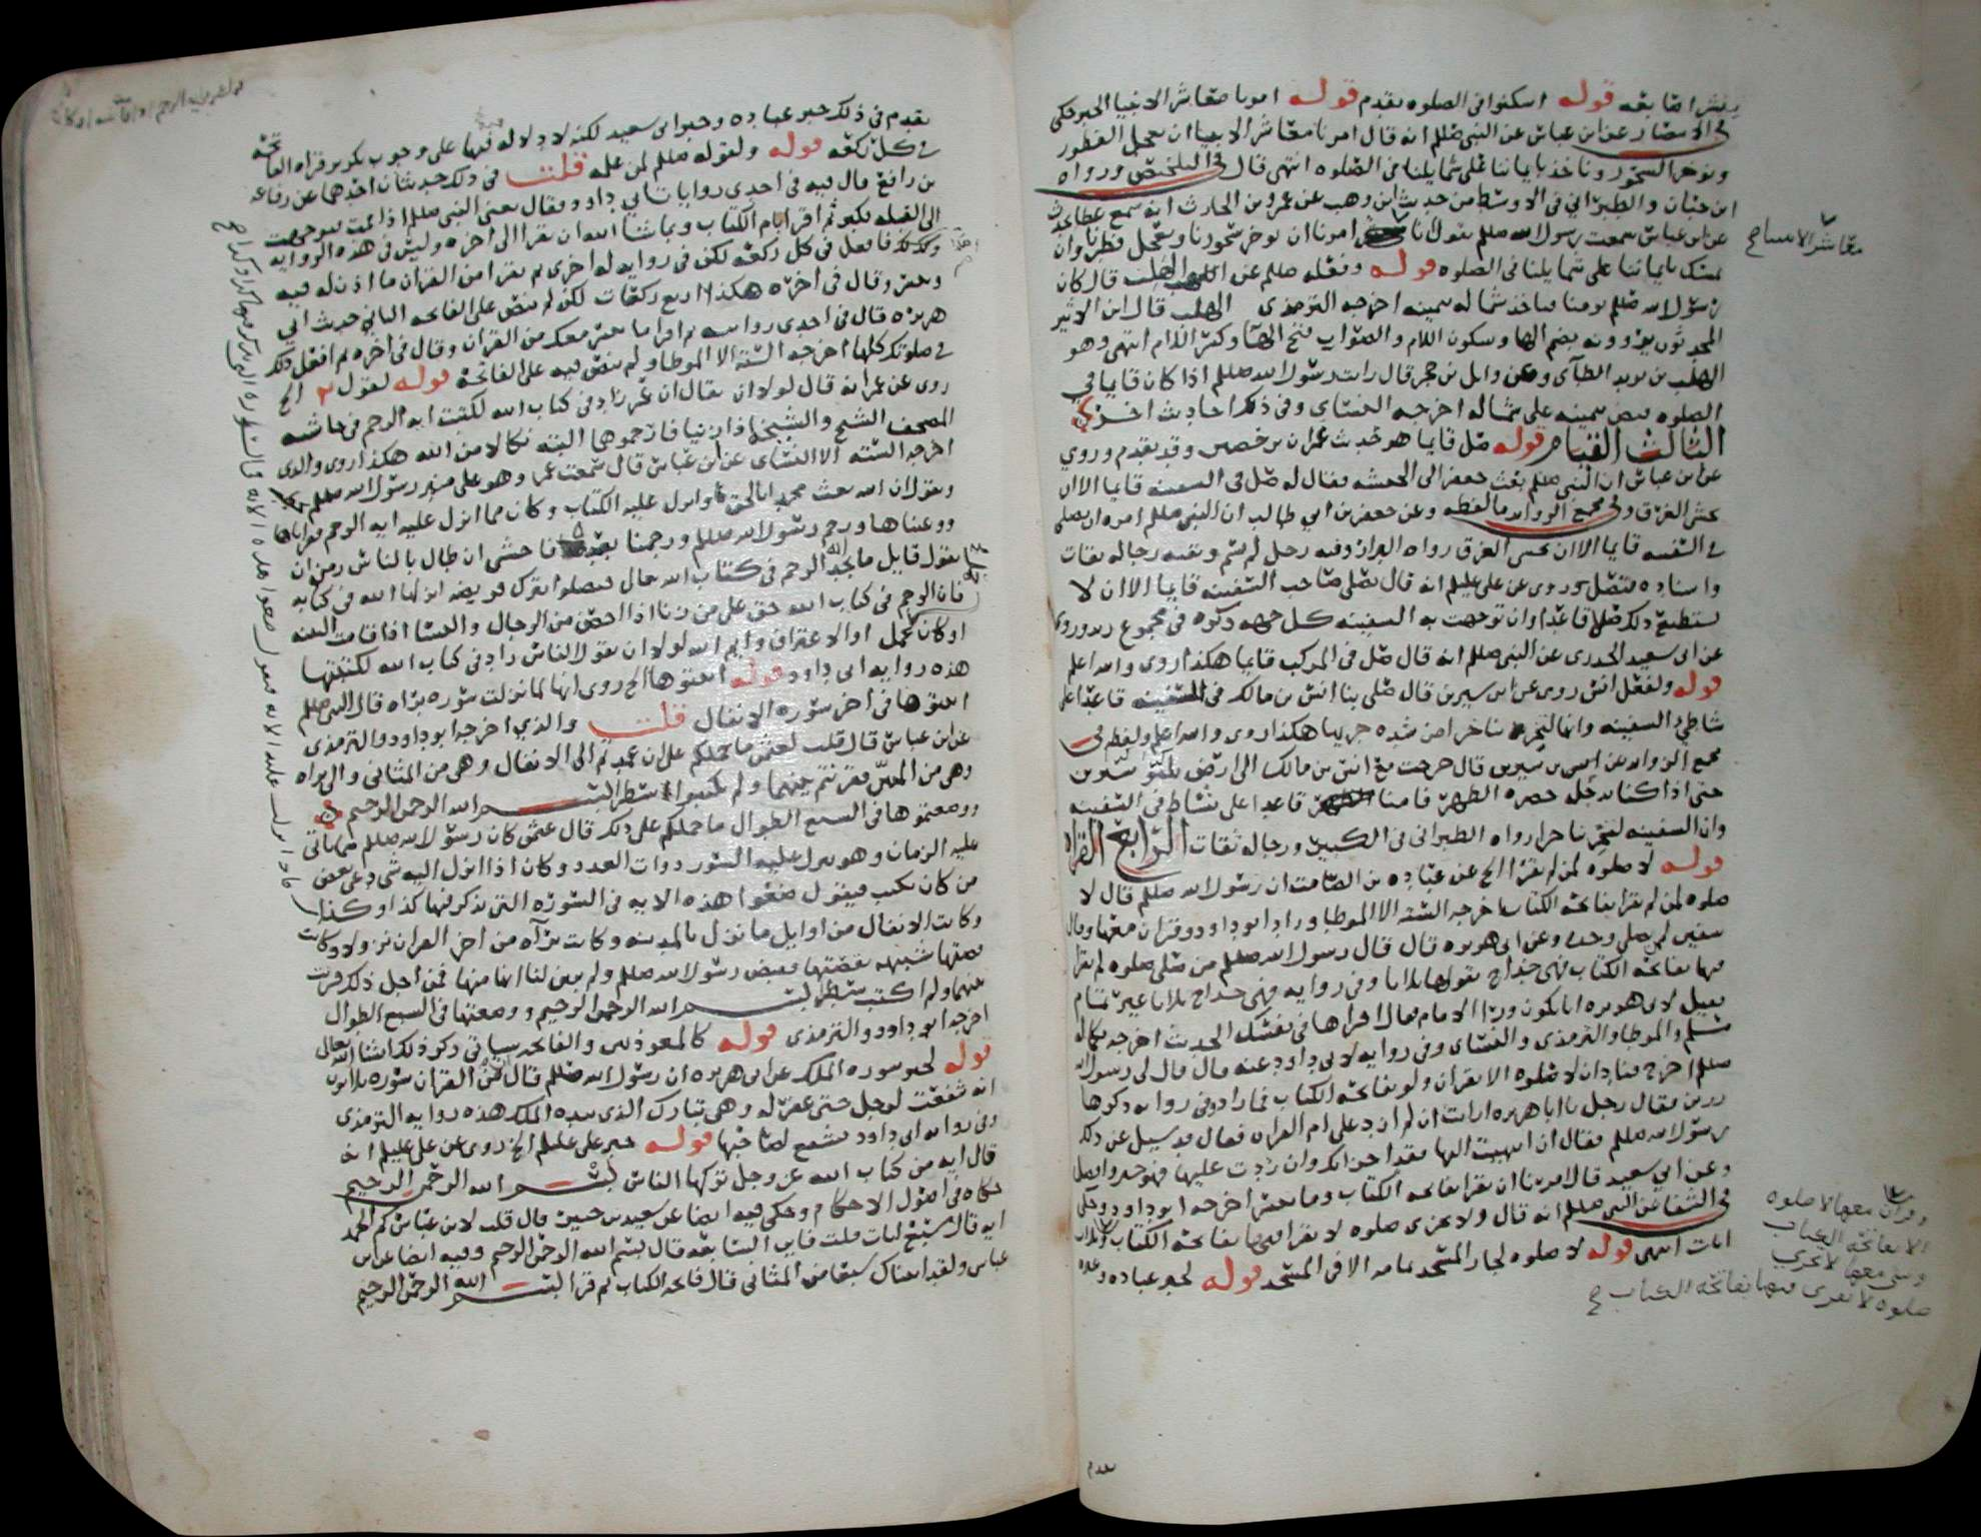 ينشر اصابعه قوله اسكنوا في الصلوه تقدم قوله امرنا معاشر الانبيا الخبر حكى
في الانتصار عن ابن عباس عن النبي صللم انه قال امرنا معاشر الانبيا ان نعجل الفطور
ونوخر السحور وناخذ بايماننا على شمايلنا في الصلوه انتهى قال في التلخيص ورواه
ابن حبان والطبراني في الاوسط من حديث ابن وهب عن عمرو بن الحارث انه سمع عطا يحدث
عن ابن عباس سمعت رسول الله صللم يقول انا امرنا ان نوخر سحورنا ونعجل فطرنا وان
نمسك بايماننا على شمايلنا في الصلوه قوله وفعله صللم عن الهلب قال كان
رسول الله صللم يومنا فياخذ شماله بيمينه اخرجه الترمذي الهلب قال ابن الاثير
المحدثون يروونه بضم الها وسكون اللام والصواب فتح الها وكسر اللام انتهى وهو
الهلب بن يزيد الطآى وعن وايل بن حجر قال رايت رسول الله صللم اذا كان قايما في
الصلوه قبض بيمينه على شماله اخرجه النساى وفي ذلك احاديث اخر
الثالث القيام قوله صل قايما هو حديث عمران بن حصين وقد تقدم وروي
عن ابن عباس ان النبي صللم بعث جعفر الى الحبشه فقال له صل في السفينه قايما الا ان
تخشى الغرق وفي مجمع الزوايد ما لفظه وعن جعفر بن ابي طالب ان النبي صللم امره ان يصلي
في السفينه قايما الا ان يخشى الغرق رواه البزار وفيه رجل لم يسم وبقيه رجاله ثقات
واسناده متصل وروى عن علي عليلم انه قال يصلي صاحب السفينه قايما الا ان لا
يستطيع ذلك صلى قاعدا وان توجهت به السفينه كل جهه ذكره في مجموع زيد وروى
عن ابي سعيد الخدرى عن النبي صللم انه قال صل في المركب قايما هكذا روى والله اعلم
قوله ولفعل انس روى عن ابن سيرين قال صلى بنا انس بن مالك في السفينه قاعدا على
شاطى السفينه وانها لتجر بنا خرا من شده جريها هكذا روى والله اعلم ولفظه في
مجمع الزوايد عن انس بن سيرين قال خرجت مع انس بن مالك الى ارض
حتى اذا كنا بدجله حضره الظهر فامنا قاعدا على بساط في السفينه
وان السفينه لتجر بنا جرا رواه الطبراني في الكبير ورجاله ثقات الرابع القراه
قوله لا صلوه لمن لم يقرا الخ عن عباده بن الصامت ان رسول الله صللم قال لا
صلوه لمن لم يقرا بفاتحه الكتاب اخرجه الستة الا الموطا وزاد ابو داود وقران معها وقال
سفين لمن يصلي وحده وعن ابى هريره قال قال رسول الله صللم من صلى صلوه لم يقرا
فيها بفاتحه الكتاب فهى خداج يقولها ثلاثا وفي روايه فهي خداج ثلاثا غير تمام
فقيل لابى هريره انا نكون ورآ الامام فقال اقراها في نفسك الحديث اخرجه بكماله
مسلم والموطا والترمذي والنساى وفي روايه لابى داود عنه قال قال لى رسول الله
صللم اخرج فناد ان لا صلوه الا بقران ولو بفاتحة الكتاب فما زاد وفي روايه ذكرها
رزين فقال رجل يا ابا هريره ارايت ان لم ازد على ام القران فقال قد سيل عن ذلك
رسول الله صللم فقال ان انتهيت اليها فقد اجزاتك وان زدت عليها فهو خير وافضل
وعن ابي سعيد قال امرنا ان نقرا بفاتحه الكتاب وما تيسر اخرجه ابو داود وحكى
في الشفا عن النبي صللم انه قال ولا يجزى صلوه لا يقرا فيها بفاتحة الكتاب وثلاث
ايات انتهى قوله لا صلوه لجار المسجد تمامه الا في المسجد قوله لخبر عباده وغيره
معاشر الانبيا ح
وقران معها لا صلوه
الا بفاتحه الكتاب
وشى معها لا تجزي
صلوه لا يقرى فيها بفاتحة الكتاب ح
تقدم
تقدم في ذلك خبر عباده وخبر ابى سعيد لكنه لا دلاله فيها على وجوب تكرير قراه الفاتحه
في كل ركعه قوله ولقوله صللم لمن علمه قلت في ذلك حديثان احدهما عن رفاعه
بن رافع قال فيه في احدى روايات ابى داود فقال يعنى النبي صللم اذا قمت فتوجهت
الى القبله فكبر ثم اقرا بام الكتاب وبما شا الله ان تقرا الى اخره وليس في هذه الروايه
وكذلك فافعل في كل ركعه لكن في روايه له اخرى ثم تقرا من القران ما اذن له فيه
وتيسر وقال في اخره هكذا اربع ركعات لكن لم ينص على الفاتحه الثاني حديث ابي
هريره قال في احدى رواياته ثم اقرا ما تيسر معك من القران وقال في اخره ثم افعل ذلك
في صلوتك كلها اخرجه الستة الا الموطا ولم ينص فيه على الفاتحة قوله لقول الخ
روى عن عمر انه قال لولا ان يقال ان عمر زاد في كتاب الله لكتبت ايه الرجم في حاشيه
المصحف الشيخ والشيخة اذا زنيا فارجموهما البته نكالا من الله هكذا روى والذى
اخرجه الستة الا النساى عن ابن عباس قال سمعت عمر وهو على منبر رسول الله صللم يخطب
ويقول ان الله بعث محمدا بالحق وانزل عليه الكتاب وكان مما انزل عليه ايه الرجم فقراناها
ووعيناها ورجم رسول الله صللم ورجمنا بعده فاخشى ان طال بالناس زمن ان
يقول قايل ما نجد الرجم في كتاب الله تعالى فيضلوا بترك فريضه انزلها الله في كتابه
فان الرجم في كتاب الله حق على من زنا اذا احصن من الرجال والنسا اذا قامت البينه
او كان حمل او الاعتراف وايم الله لولا ان يقول الناس زاد في كتاب الله لكتبتها
هذه روايه ابى داود قوله اثبتوها الخ روى انها لما نزلت سوره براه قال النبي صللم
اثبتوها في اخر سوره الانفال قلت والذي اخرجه ابو داود والترمذى
عن ابن عباس قال قلت لعثمن ما حملكم على ان عمدتم الى الانفال وهى من المثانى والى براه
وهى من المئين فقرنتم بينهما ولم تكتبوا سطر بسم الله الرحمن الرحيم
ووضعتموها في السبع الطوال ما حملكم على ذلك قال عثمن كان رسول الله صللم مما ياتى
عليه الزمان وهو ينزل عليه السور ذوات العدد وكان اذا انزل اليه شى دعى بعض
من كان يكتب فيقول ضعوا هذه الايه في السوره التي يذكر فيها كذا وكذا
وكانت الانفال من اوايل ما نزل بالمدينه وكانت برآه من اخر القران نزولا وكانت
قصتها شبيهه بقصتها فقبض رسول الله صللم ولم يبين لنا انها منها فمن اجل ذلك قرنت
بينهما ولم اكتب سطر بسم الله الرحمن الرحيم ووضعتها في السبع الطوال
اخرجه ابو داود والترمذى قوله كالمعوذتين والفاتحه سياتي ذكر ذلك انشا الله تعالى
قوله لخبر سوره الملك عن ابى هريره ان رسول الله صللم قال من القران سوره ثلاثون
ايه شفعت لرجل حتى غفر له وهى تبارك الذى بيده الملك هذه روايه الترمذى
وفي روايه ابى داود تشفع لصاحبها قوله خبر علي عليلم الخ روى عن علي عليلم انه
قال ايه من كتاب الله عز وجل تركها الناس بسم الله الرحمن الرحيم
حكاه في اصول الاحكام وحكى فيه ايضا عن سعيد بن جبير قال قلت لابن عباس كم الحمد
ايه قال سبع ايات قلت فاين السابعه قال بسم الله الرحمن الرحيم وفيه ايضا عن ابن
عباس ولقد اتيناك سبعا من المثانى قال فاتحه الكتاب ثم قرا بسم الله الرحمن الرحيم